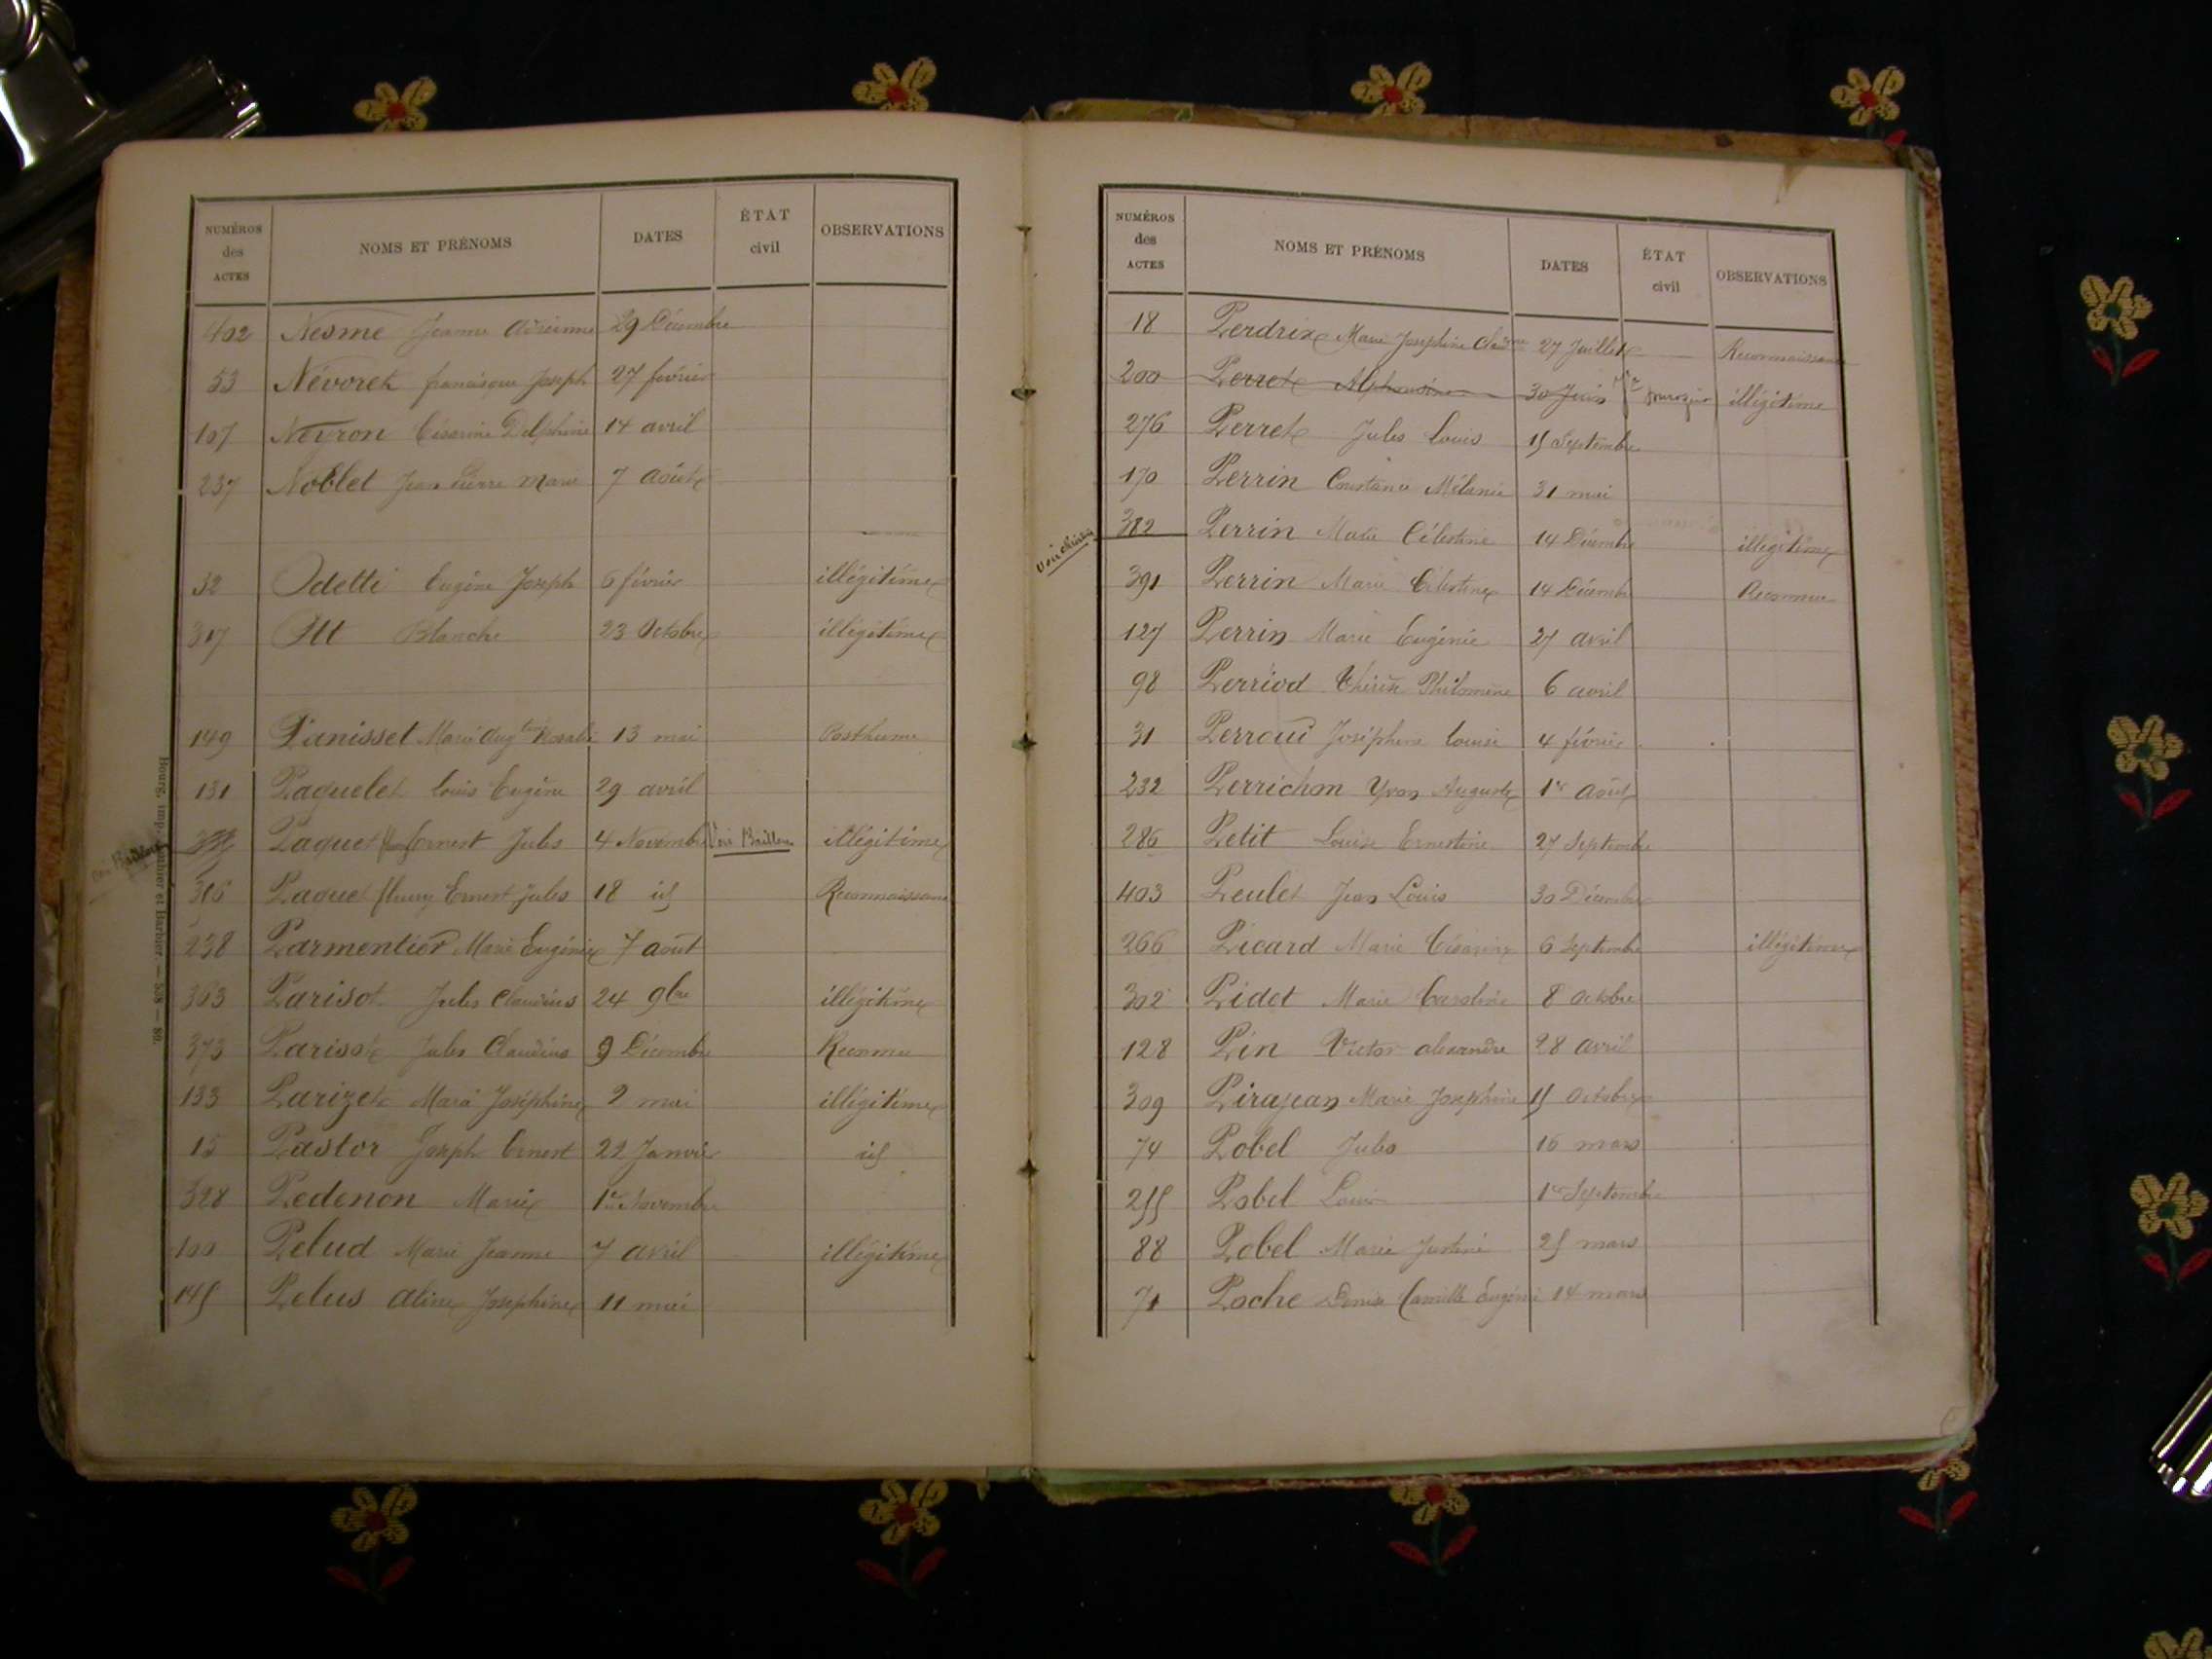 NUMÉROS des ACTES NOMS ET PRÉNOMS DATES ÉTAT civil OBSERVATIONS
402 Nesme Jeanne Adrienne 29 Décembre
53 Névoret francisque Joseph 27 février
107 Neyron Césarine Delphine 14 avril
237 Noblet Jean Pierre Marie 7 août
32 Odetti Eugène Joseph 6 février illégitime
317 Ott Blanche 23 Octobre illégitime
149 Panisset Marie Aug.tine Rosalie 13 mai Posthume
131 Paquelet Louis Eugène 29 avril
Paquet Ernest Jules 4 Novembre Voir Bailleux illégitime
Paquet fleury Ernest Jules 18 id Reconnaissance
238 Parmentier Marie Eugénie 7 août
363 Parisot Jules Claudius 24 9bre illégitime
373 Parisot Jules Claudius 9 Décembre Reconnu
133 Parizet Maria Joséphine 2 mai illégitime
15 Pastor Joseph Ernest 22 Janvier id
328 Pedenon Marie 1er Novembre
100 Pelud Marie Jeanne 7 avril illégitime
145 Pelus Aline Joséphine 11 mai
Bourg, imp. et Barbier. — 538 — 89.
NUMÉROS des ACTES NOMS ET PRÉNOMS DATES ÉTAT civil OBSERVATIONS
18 Perdrix Marie Joséphine 27 Juillet Reconnaissance
200 Perret Alphonsine 30 Juin illégitime
276 Perret Jules Louis 15 Septembre
170 Perrin Constance Mélanie 31 mai
382 Perrin Marie Célestine 14 Décembre illégitime
391 Perrin Marie Célestine 14 Décembre Reconnue
127 Perrin Marie Eugénie 27 avril
98 Perriod Thérèse Philomène 6 avril
31 Perroud Joséphine Louise 4 février
232 Perrichon Yvon Auguste 1er août
286 Petit Louise Ernestine 27 Septembre
403 Peulet Jean Louis 30 Décembre
266 Picard Marie Césarine 6 Septembre illégitime
302 Pidot Marie Caroline 8 Octobre
128 Pin Victor alexandre 28 avril
309 Pirajean Marie Joséphine 15 Octobre
74 Pobel Jules 16 mars
255 Pobel Louis 1er Septembre
88 Pobel Marie Justine 25 mars
71 Poche Denise Camille Eugénie 14 mars